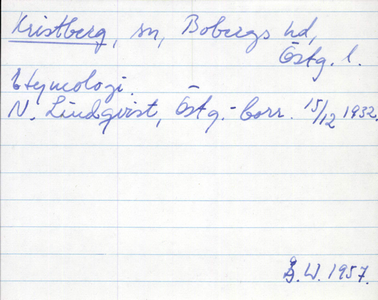 Kristberg, sn, Bobergs hd,
Östg. l.
Etymologi.
N. Lindqvist, Östg.-Corr. 15/12 1932.
B.W. 1957.